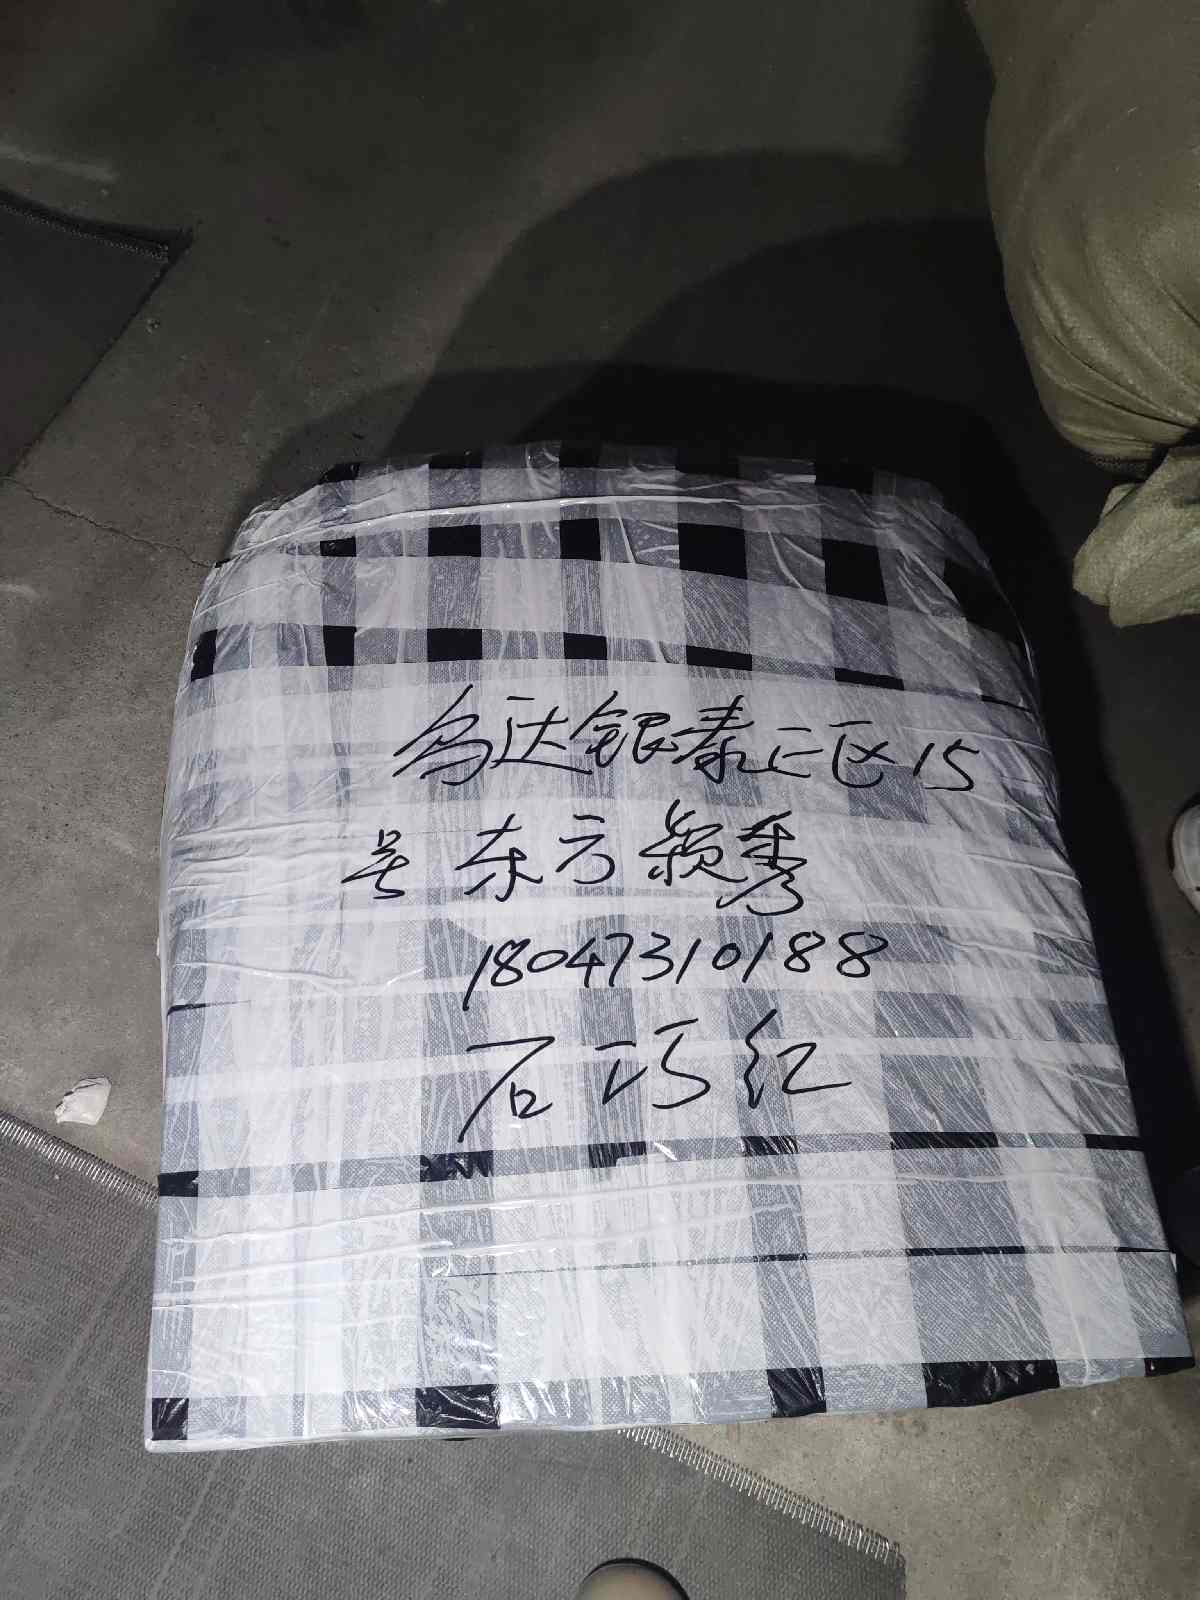 乌达银泰三区15
号 东方颖秀
18047310188
石巧红